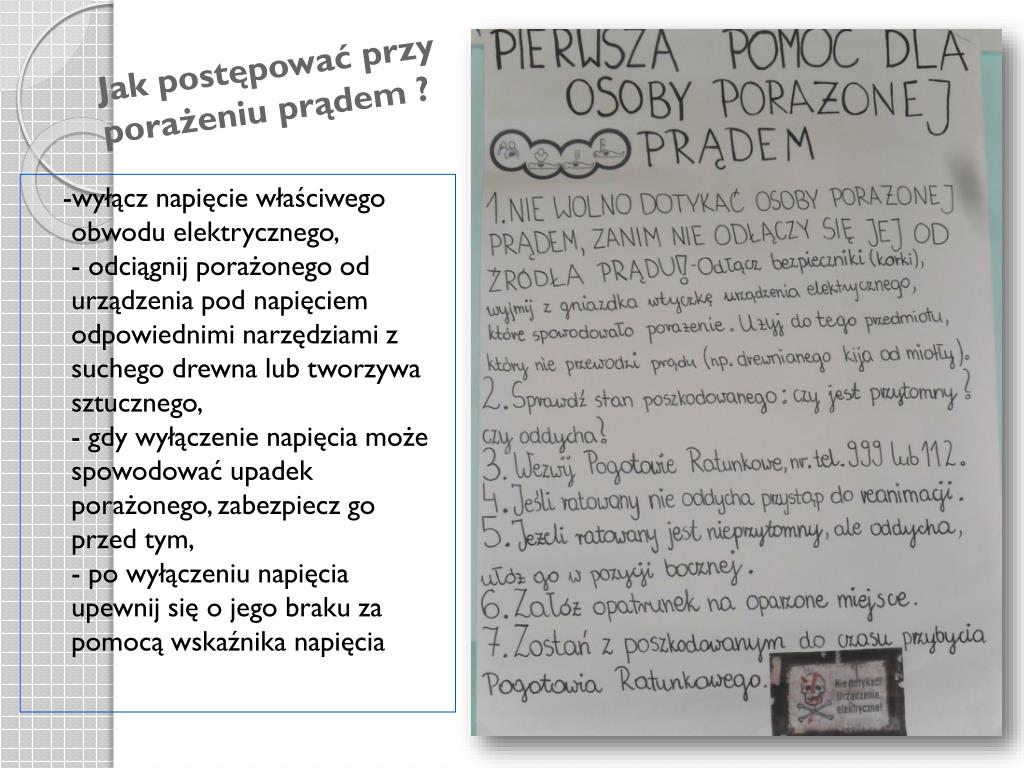 Jak postępować przy
porażeniu prądem ?
-wyłącz napięcie właściwego
obwodu elektrycznego,
- odciągnij porażonego od
urządzenia pod napięciem
odpowiednimi narzędziami z
suchego drewna lub tworzywa
sztucznego,
- gdy wyłączenie napięcia może
spowodować upadek
porażonego, zabezpiecz go
przed tym,
- po wyłączeniu napięcia
upewnij się o jego braku za
pomocą wskaźnika napięcia
PIERWSZA POMOC DLA
OSOBY PORAŻONEJ
PRĄDEM
1. NIE WOLNO DOTYKAĆ OSOBY PORAŻONEJ
PRĄDEM, ZANIM NIE ODŁĄCZY SIĘ JEJ OD
ŹRÓDŁA PRĄDU! - Odłącz bezpieczniki (korki),
wyjmij z gniazdka wtyczkę urządzenia elektrycznego,
które spowodowało porażenie. Użyj do tego przedmiotu,
który nie przewodzi prądu (np. drewnianego kija od miotły).
2. Sprawdź stan poszkodowanego: czy jest przytomny?
czy oddycha?
3. Wezwij Pogotowie Ratunkowe, nr. tel. 999 lub 112.
4. Jeśli ratowany nie oddycha przystąp do reanimacji.
5. Jeżeli ratowany jest nieprzytomny, ale oddycha,
ułóż go w pozycji bocznej.
6. Załóż opatrunek na oparzone miejsce.
7. Zostań z poszkodowanym do czasu przybycia
Pogotowia Ratunkowego.
Nie dotykać!
Urządzenie
elektryczne!